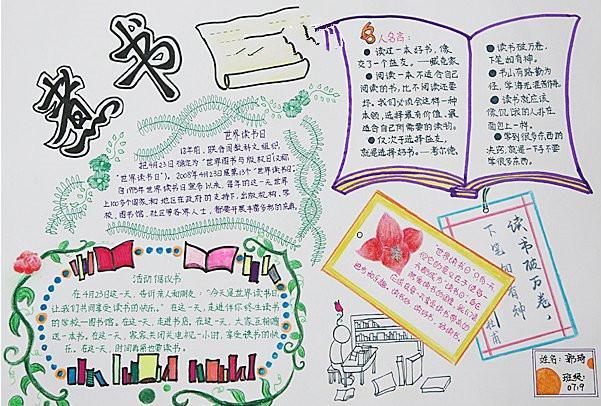 煮书
世界读书日
13年前,联合国教科文组织,
把4月23日确定为“世界图书与版权日(又称
“世界读书日”)。2008年4月23日是第13个“世界读书日”。
自1995年世界读书日宣布以来,每年的这一天世界
上100多个国家和地区政府的支持下,出版机构、学
校、图书馆、社区等各界人士,都要开展丰富多彩的庆典。
名人名言:
●读过一本好书,像
交了一个益友。——臧克家
●阅读一本不适合自己
阅读的书,比不阅读还要
坏。我们必须会这样一种
本领,选择最有价值、最
适合自己所需要的读物。
●仅次于选择益友,
就是选择好书。——考尔德
●读书破万卷,
下笔如有神。
●书山有路勤为
径,学海无涯苦作舟。
●读书就应该
像饥饿的人扑在
面包上一样。
●学到很多东西的
决窍,就是一下子不要
学很多东西。
活动倡议书
在4月23日这一天,告诉亲人和朋友:“今天是世界读书日,
让我们共同享受读书的快乐。”在这一天,走进伴你终生读书
的学校—图书馆。在这一天,走进书店。在这一天,大家互相赠
送一本书。在这一天,家家关闭电视机一小时,享受读书的快
乐。在这一天,时间再紧也要读书。
世界读书日只有一天
读书破万卷,
下笔如有神
杜甫
姓名:郭琦
班级:
0719